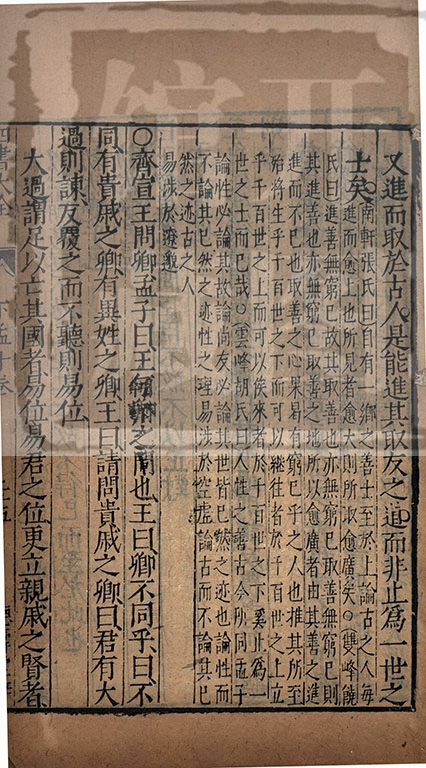 又進而取於古人是能進其取友之道而非止為一世之
士矣
南軒張氏曰自有一鄉之善士至於上論古之人每
進而愈上也所見者愈大則所取愈廣矣○雙峰饒
氏曰進善無窮已故其取善亦無窮已取善無窮已則
其進善也亦無窮已取善之地所以愈廣者由其善之進
進而不已也取善之心果易有窮已乎之人也推其所至
殆將生乎千百世之下而可以繼往者於千百世之上立
乎千百世之上而可以俟來者於千百世之下奚止為一
世之士而已哉○雲峰胡氏曰人性之善古今所同孟子
論性必論其故論尚友必論其世皆已然之迹也論性而
不論其已然之迹性之理易涉於空虛論古而不論其已
然之迹古之人
易涉於遼邈
○齊宣王問卿孟子曰王何卿之問也王曰卿不同乎曰不
同有貴戚之卿有異姓之卿王曰請問貴戚之卿曰君有大
過則諫反覆之而不聽則易位
大過謂足以亡其國者易位易君之位更立親戚之賢者
四書大全 下孟十卷